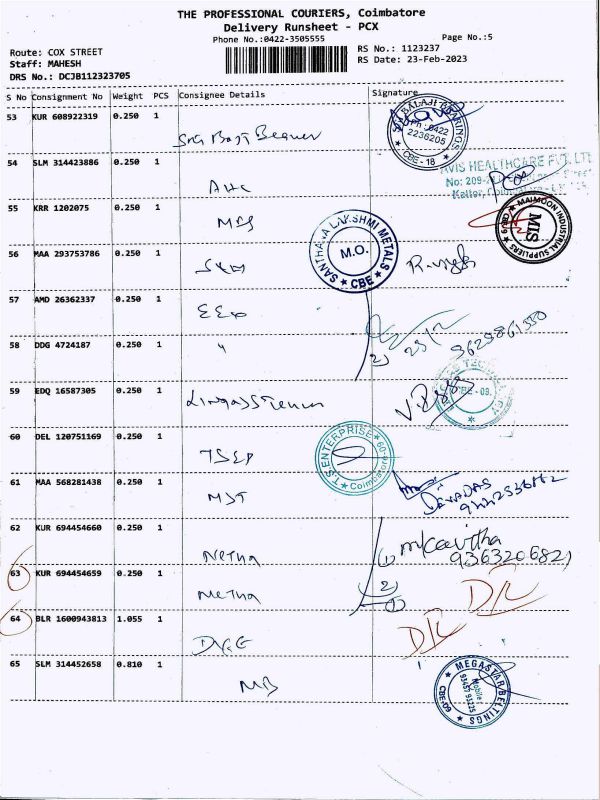 THE PROFESSIONAL COURIERS, Coimbatore
Delivery Runsheet - PCX
Phone No.:0422-3505555
Page No.:5
Route: COX STREET
RS No.: 1123237
Staff: MAHESH
RS Date: 23-Feb-2023
DRS No.: DCJB112323705
S No Consignment No Weight PCS Consignee Details Signature
53 KUR 608922319 0.250 1
BALAJI BEARINGS
Ph : 0422
2236205
CBE - 18
54 SLM 314423886 0.250 1
AVIS HEALTHCARE PVT. LTD
No: 209-
55 KRR 1202075 0.250 1 MIS
MAIMOON INDUSTRIAL SUPPLIERS
MIS
56 MAA 293753786 0.250 1 SLM
SANTHANA LAKSHMI METALS
M.O.
CBE
57 AMD 26362337 0.250 1
58 DDG 4724187 0.250 1 "
59 EDQ 16587305 0.250 1
CBE - 09.
60 DEL 120751169 0.250 1 TSEP
T.S ENTERPRISE
Coimbatore
61 MAA 568281438 0.250 1 MST
DEVADAS
62 KUR 694454660 0.250 1 Netha
(1) M Kavitha
9363206821
63 KUR 694454659 0.250 1 Netha
2)
(1)
D/L
64 BLR 1600943813 1.055 1
D/L
65 SLM 314452658 0.810 1 MB
MEGASTAR BELTINGS
Mobile :
93457 91225
CBE-60